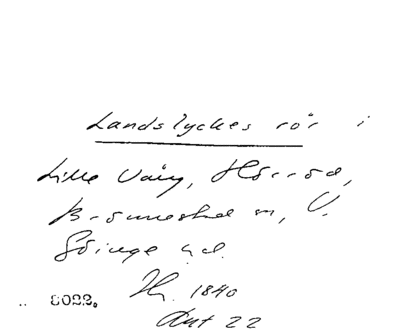 Landslyckes rör i
Lille Vång, Hörröd,
Brönnestad sn, V.
Göinge hd.
8022. Th. 1840
Ant 22